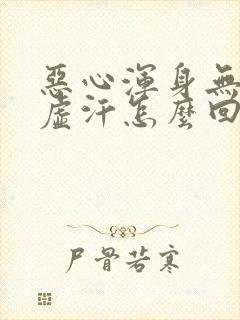 惡心渾身無
虛汗怎麼回
尸骨若寒